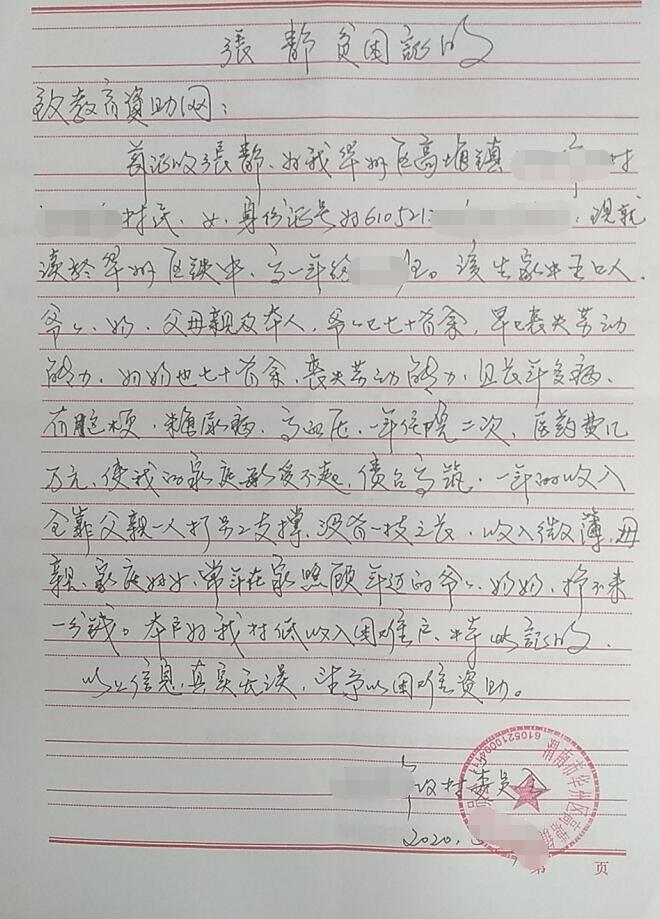 張静贫困証明
致教育資助网：
兹证明張静，为我华州区高塘镇 村
村民，女，身份证号为610521 ，现就
读於华州区铁中，高一年级 。该生家中五口人，
爷爷、奶、父母親及本人，爷爷已七十有余，早已丧失劳动
能力，奶奶也七十有余，丧失劳动能力，且长年多病，
有脑梗，糖尿病，高血压，一年住院二次，医药费几
万元，使我的家庭承受不起，债台高筑，一年的收入
全靠父親一人打工支撑，没有一技之长，收入微薄，母
親，家庭妇女，常年在家照顾年迈的爷爷、奶奶，挣不来
一分钱。本户为我村低收入困难户，特此証明，
以上信息，真实无误，请予以困难資助。
村委员会
2020.
渭南市华州区高塘镇
6105210004111
第 页